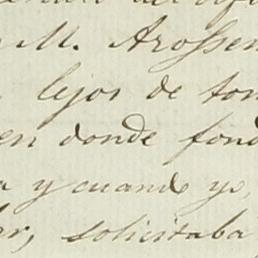 M. Arossen
lejos de ton
en donde fond
a y cuando yo,
or, solicitaba